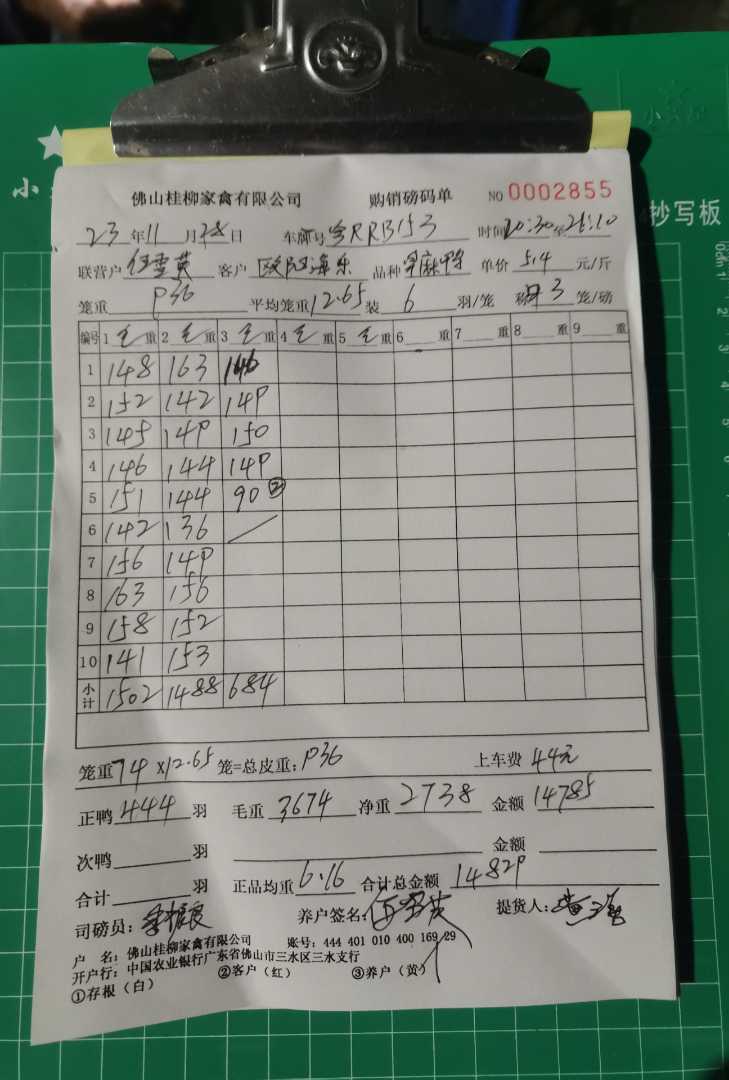 小
抄写板
佛山桂柳家禽有限公司 购销磅码单 NO 0002855
23年11月28日 车牌号 粤RRB153 时间20:30至21:10
联营户 客户 品种 麻鸭 单价 5.4 元/斤
笼重 936 平均笼重12.65装 6 羽/笼 称 3 笼/磅
编号 1 毛 重 2 毛 重 3 毛 重 4 毛 重 5 毛 重 6 重 7 重 8 重 9 重
1 148 163 146
2 152 142 149
3 145 149 150
4 146 144 149
5 151 144 90 ②
6 142 136
7 156 149
8 163 156
9 158 152
10 141 153
小计 1502 1488 684
笼重74×12.65笼=总皮重:936 上车费 44元
正鸭 444 羽 毛重 3674 净重 2738 金额 14785
次鸭 羽 金额
合计 羽 正品均重 6.16 合计总金额 14829
司磅员: 养户签名: 提货人:
户 名:佛山桂柳家禽有限公司 账号:444 401 010 400 169 29
开户行:中国农业银行广东省佛山市三水区三水支行
①存根(白) ②客户(红) ③养户(黄)